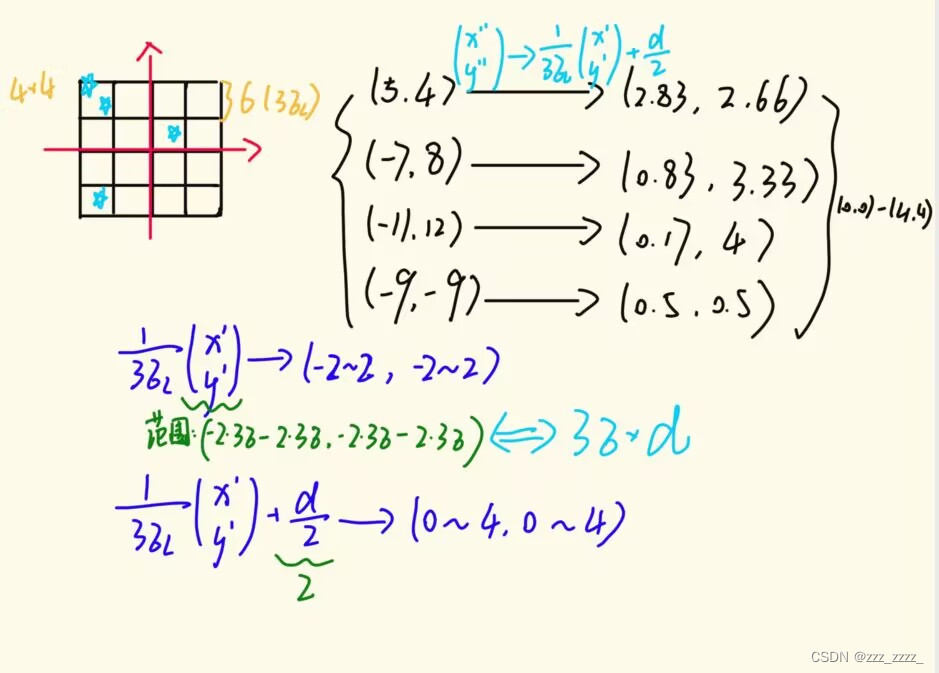 4*4
36(3δL)
(x'' y'') → 1/3δL (x' y') + d/2
(5.4) → (2.83, 2.66)
(-7,8) → (0.83, 3.33)
(-11,12) → (0.17, 4)
(-9,-9) → (0.5, 0.5)
(0.0)-(4.4)
1/3δL (x' y') → (-2~2, -2~2)
范围:(-2·3δ-2·3δ,-2·3δ-2·3δ) ⟺ 3δ*d
1/3δL (x' y') + d/2 → (0~4, 0~4)
2
CSDN @zzz_zzzz_